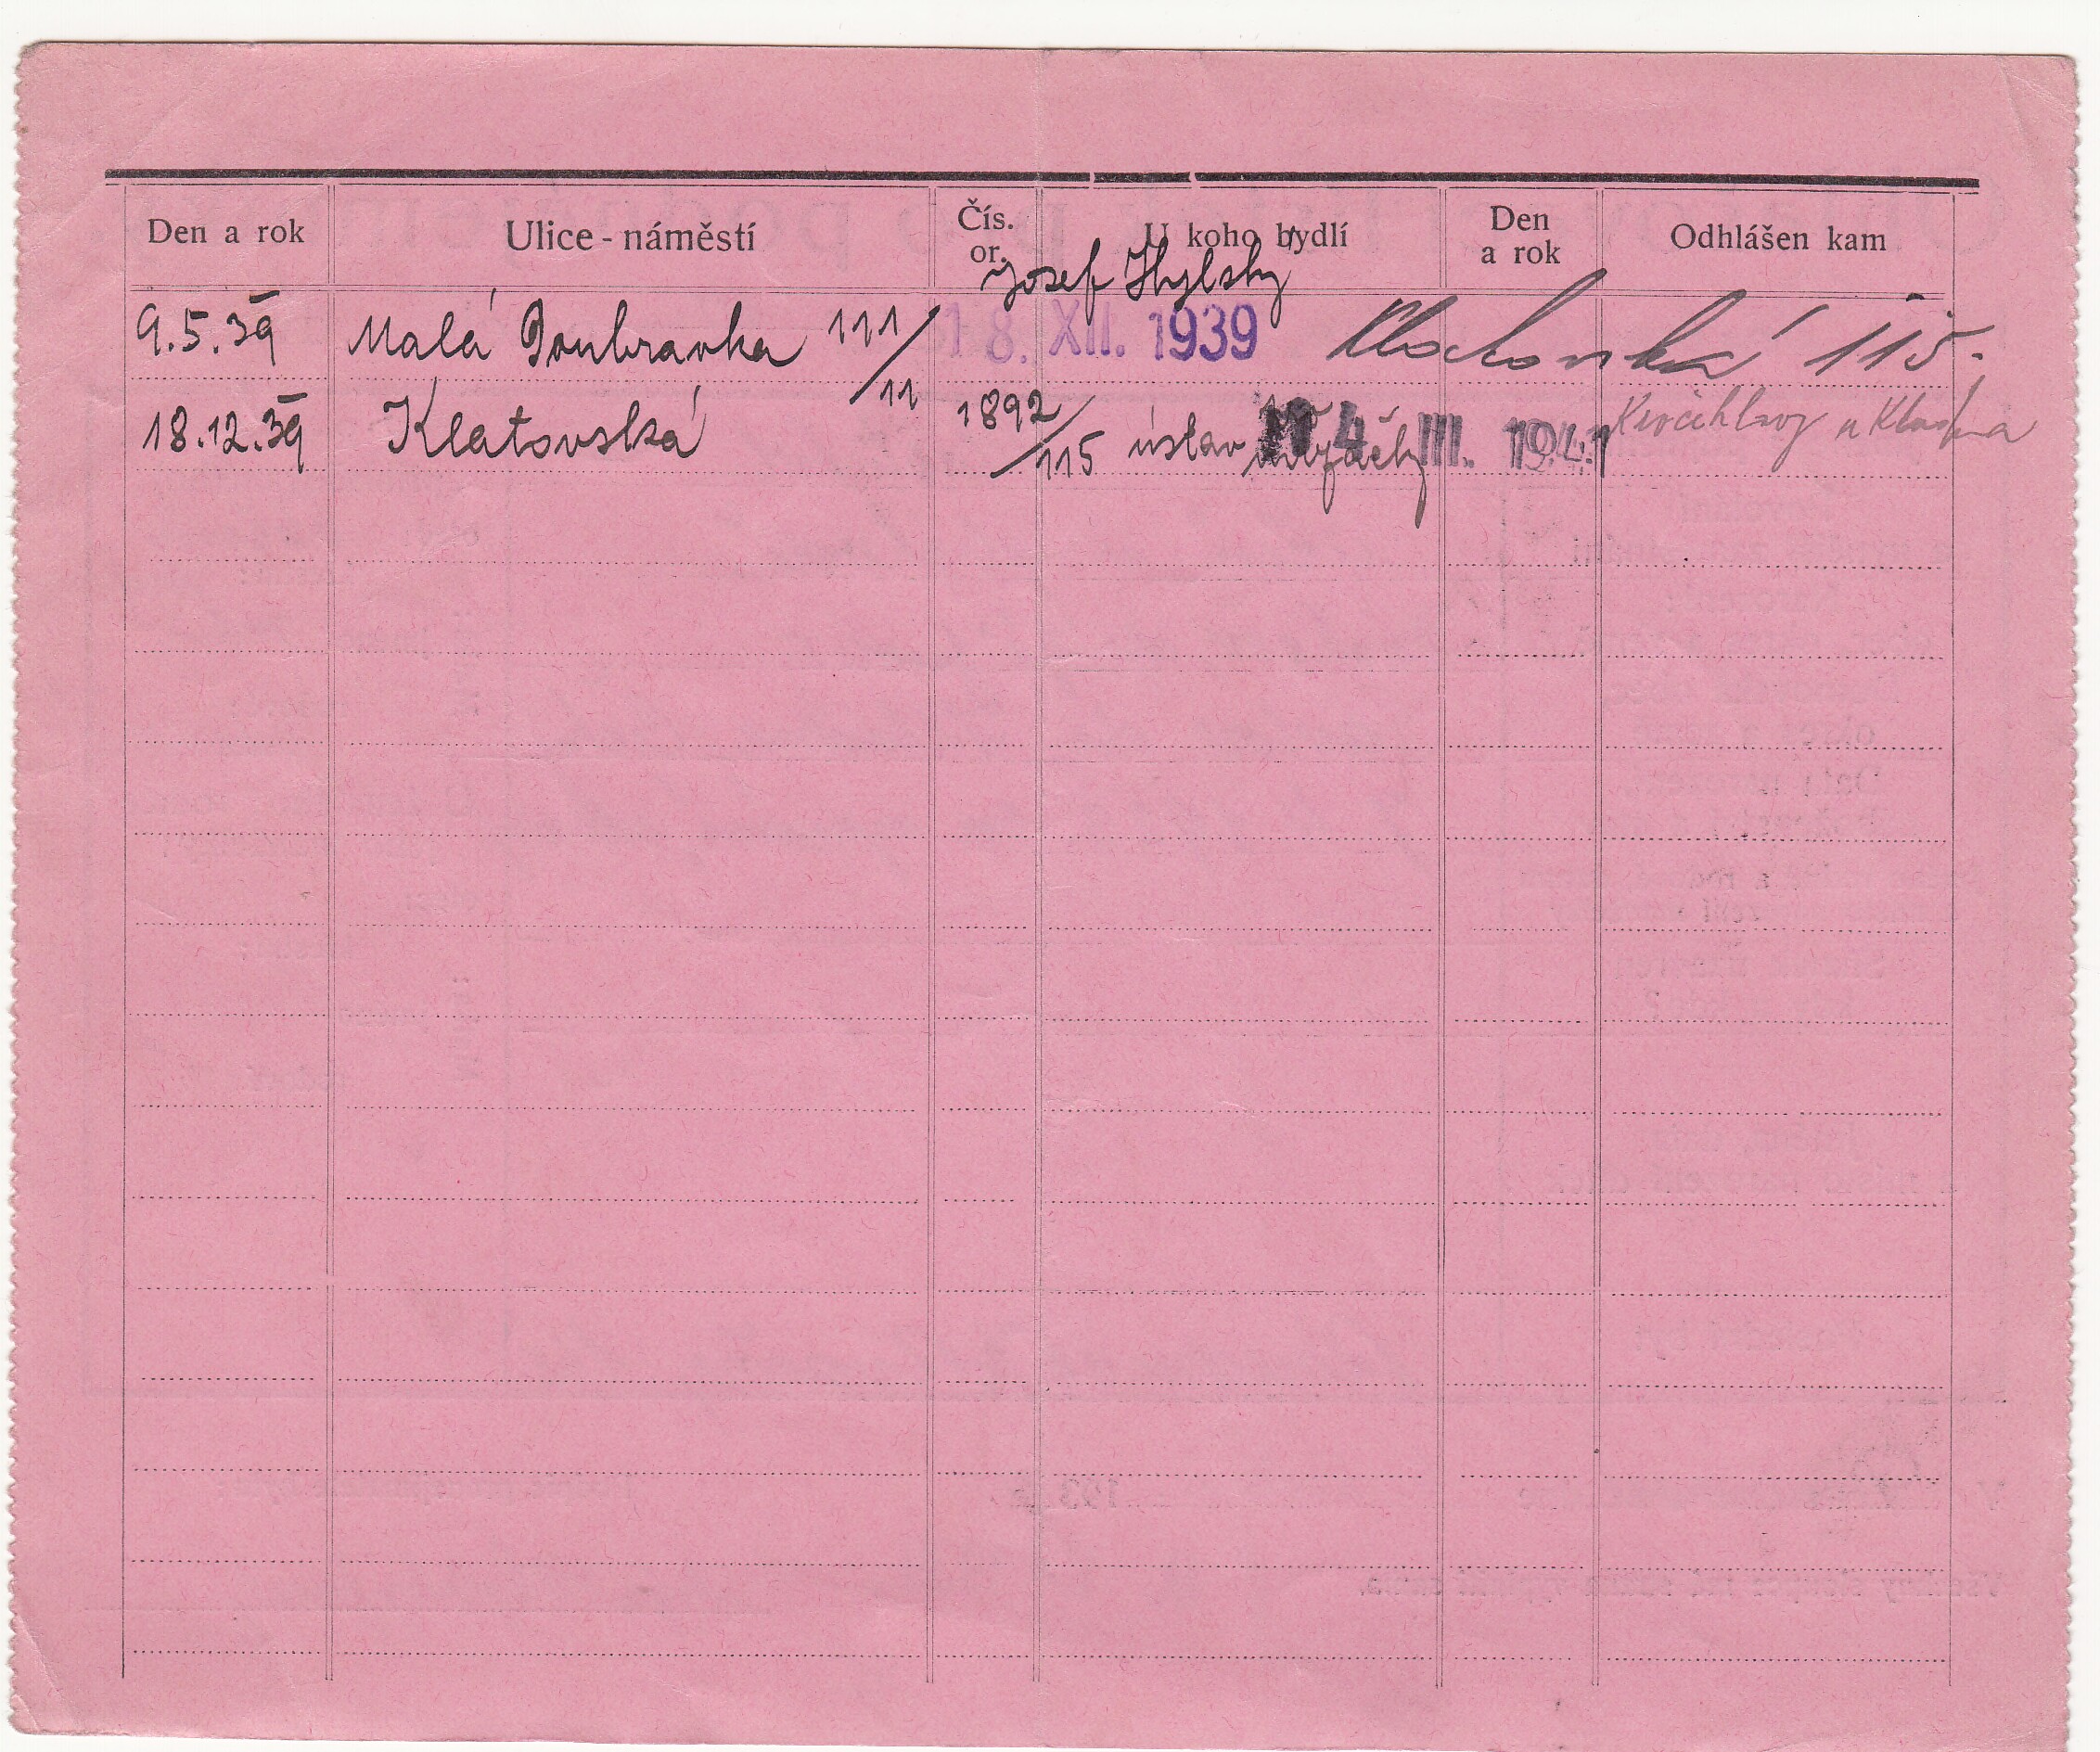 Den a rok Ulice - náměstí Čís. or. U koho bydlí Den a rok Odhlášen kam
Josef
9.5.39 Malá Doubravka 111/11 18. XII. 1939 Klatovská 115.
18.12.39 Klatovská 1892/115 ústav pro 4. III. 1941 Kročehlavy u Kladna